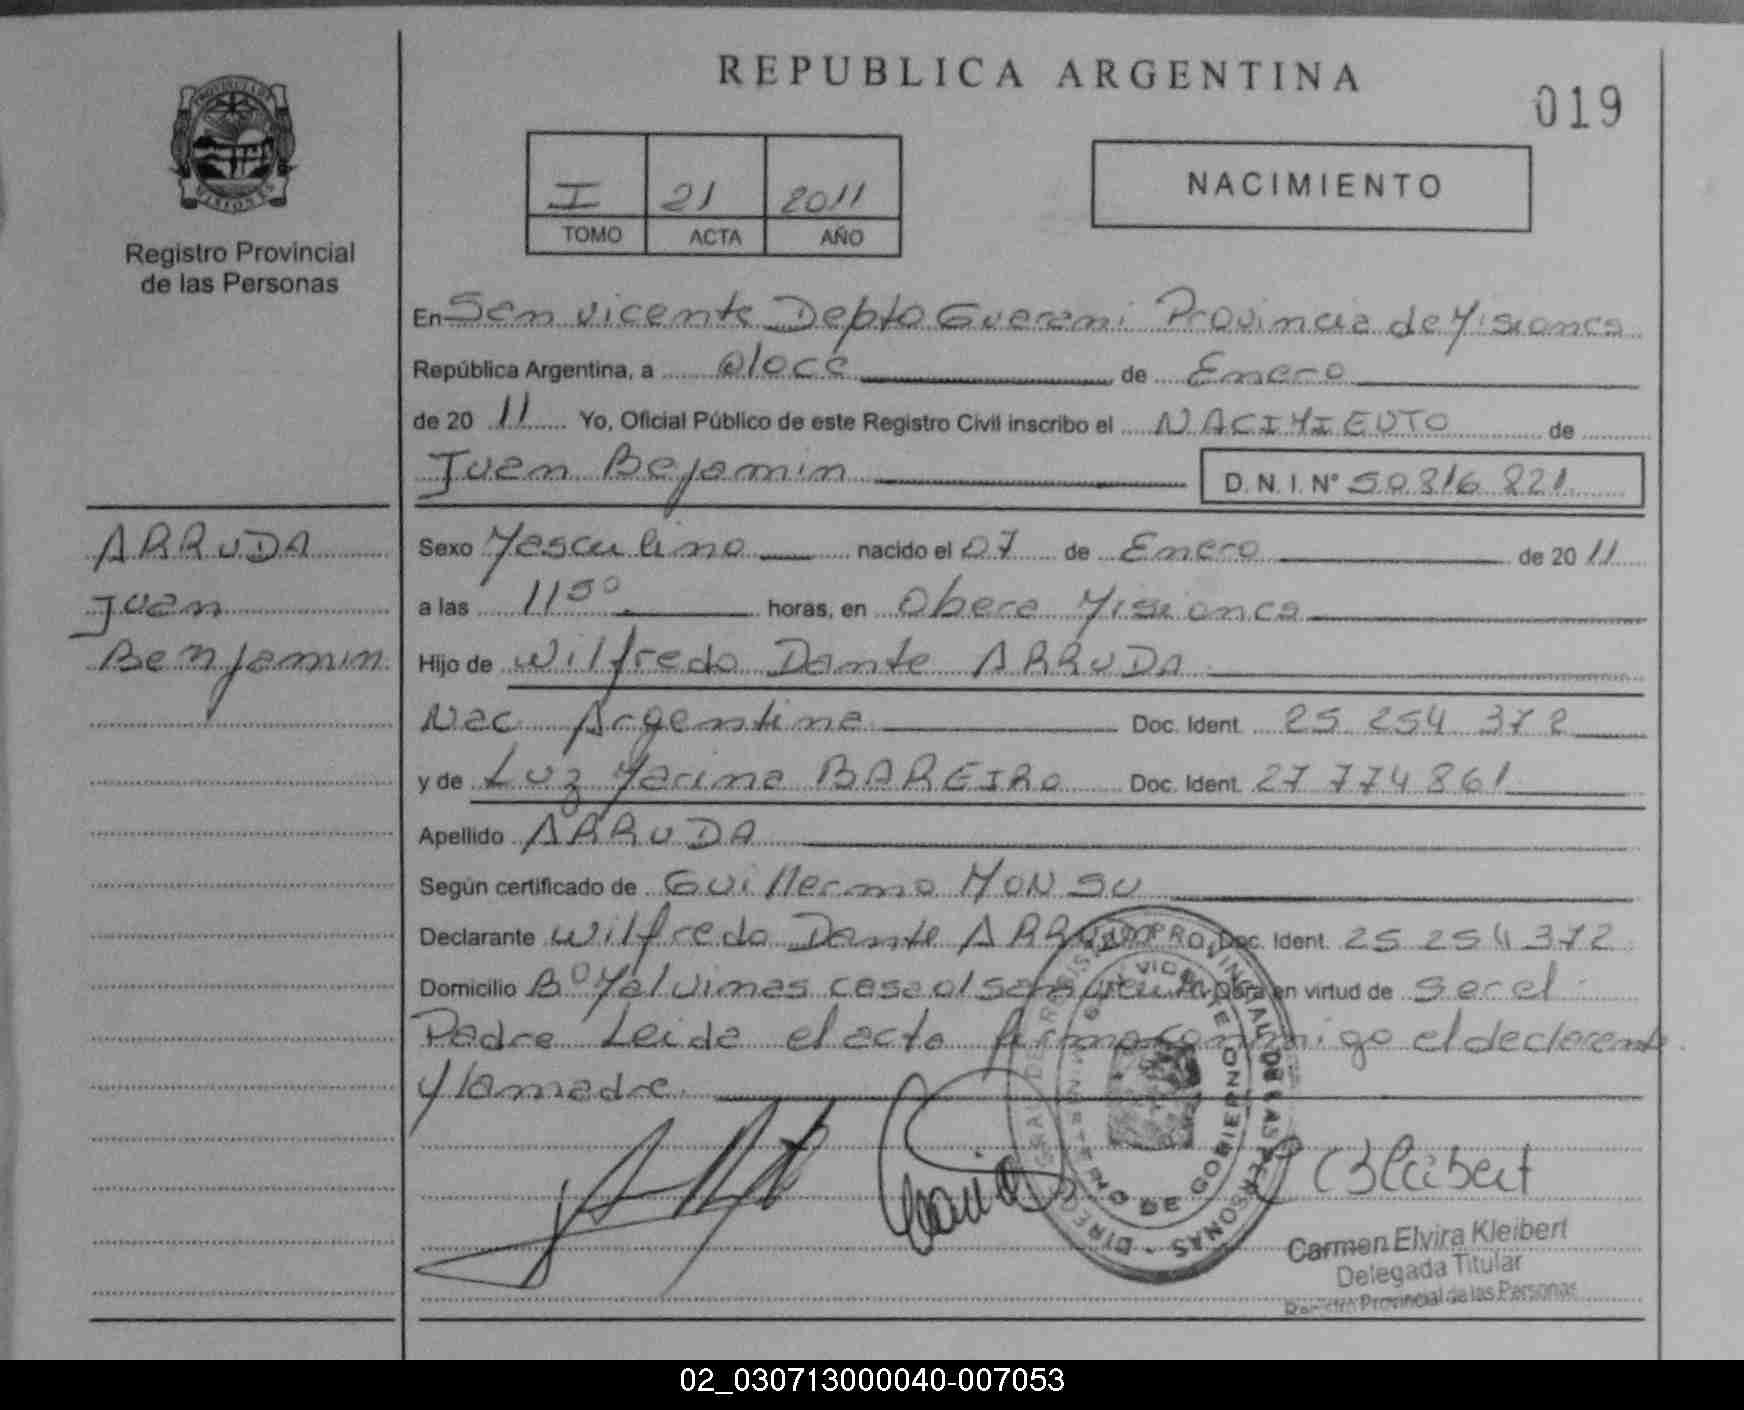 REPUBLICA ARGENTINA
019
PROVINCIA DE MISIONES
Registro Provincial
de las Personas
I 21 2011
TOMO ACTA AÑO
NACIMIENTO
En San vicente Depto Guarani Provincia de Misiones
República Argentina, a doce de Enero
de 20 11 Yo, Oficial Público de este Registro Civil inscribo el NACIMIENTO de
Juan Bejamin D.N.I. N° 50.816 821
ARRUDA
Juan
Benjamin
Sexo Masculino nacido el 07 de Enero de 20 11
a las 11 50 horas, en Obera Misiones
Hijo de Wilfredo Dante ARRUDA
Nac Argentina Doc. Ident. 25 254 372
y de Luz Marina BAREIRO Doc. Ident. 27 774 861
Apellido ARRUDA
Según certificado de Guillermo MONSU
Declarante Wilfredo Dante ARRUDA Doc. Ident. 25 254 372
Domicilio B° Malvinas casa 01 obra en virtud de ser el
Padre Leida el acta firma conmigo el declarante
y la madre.
DIRECC GRAL DE REGISTRO PROVINCIAL DE LAS PERSONAS
SAN VICENTE
MINISTERIO DE GOBIERNO
CBKleibert
Carmen Elvira Kleibert
Delegada Titular
Registro Provincial de las Personas
02_030713000040-007053